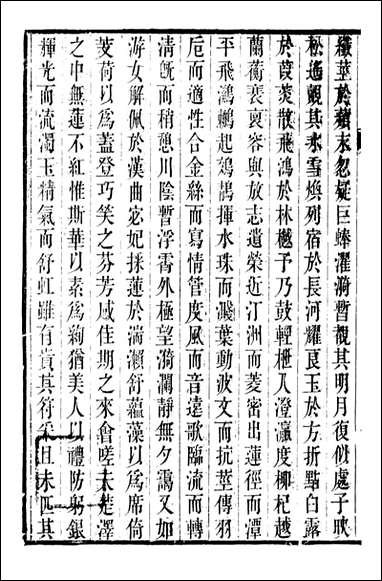 纖莖於蘋末忽疑巨蜯濯漪暫觀其明月復似處子映
松遙觀其水雪煥列宿於長河耀艮玉於方折點白露
於葭菼散飛鴻於林樾予乃鼓輕枻入澄瀛度柳杞越
蘭蘅裵裒容與放志遺榮近汀洲而菱密出蓮徑而潭
平飛鴻鶱起鵁鶄揮水珠而濺葉動波文而抗莖傳羽
巵而適性合金絲而寫情管度風而音遠歌臨流而轉
清旣而稍憩川陰暫浮霄外極望漪瀾靜無夕靄又如
游女解佩於漢曲宓妃採蓮於湍瀨舒蘊藻以爲席倚
芰荷以爲蓋登巧笑之芬芳感佳期之來會嗟夫楚澤
之中無蓮不紅惟斯華以素爲絢猶美人以禮防躬銀
輝光而流濁玉精氣而舒虹雖有貴其符采且未匹其